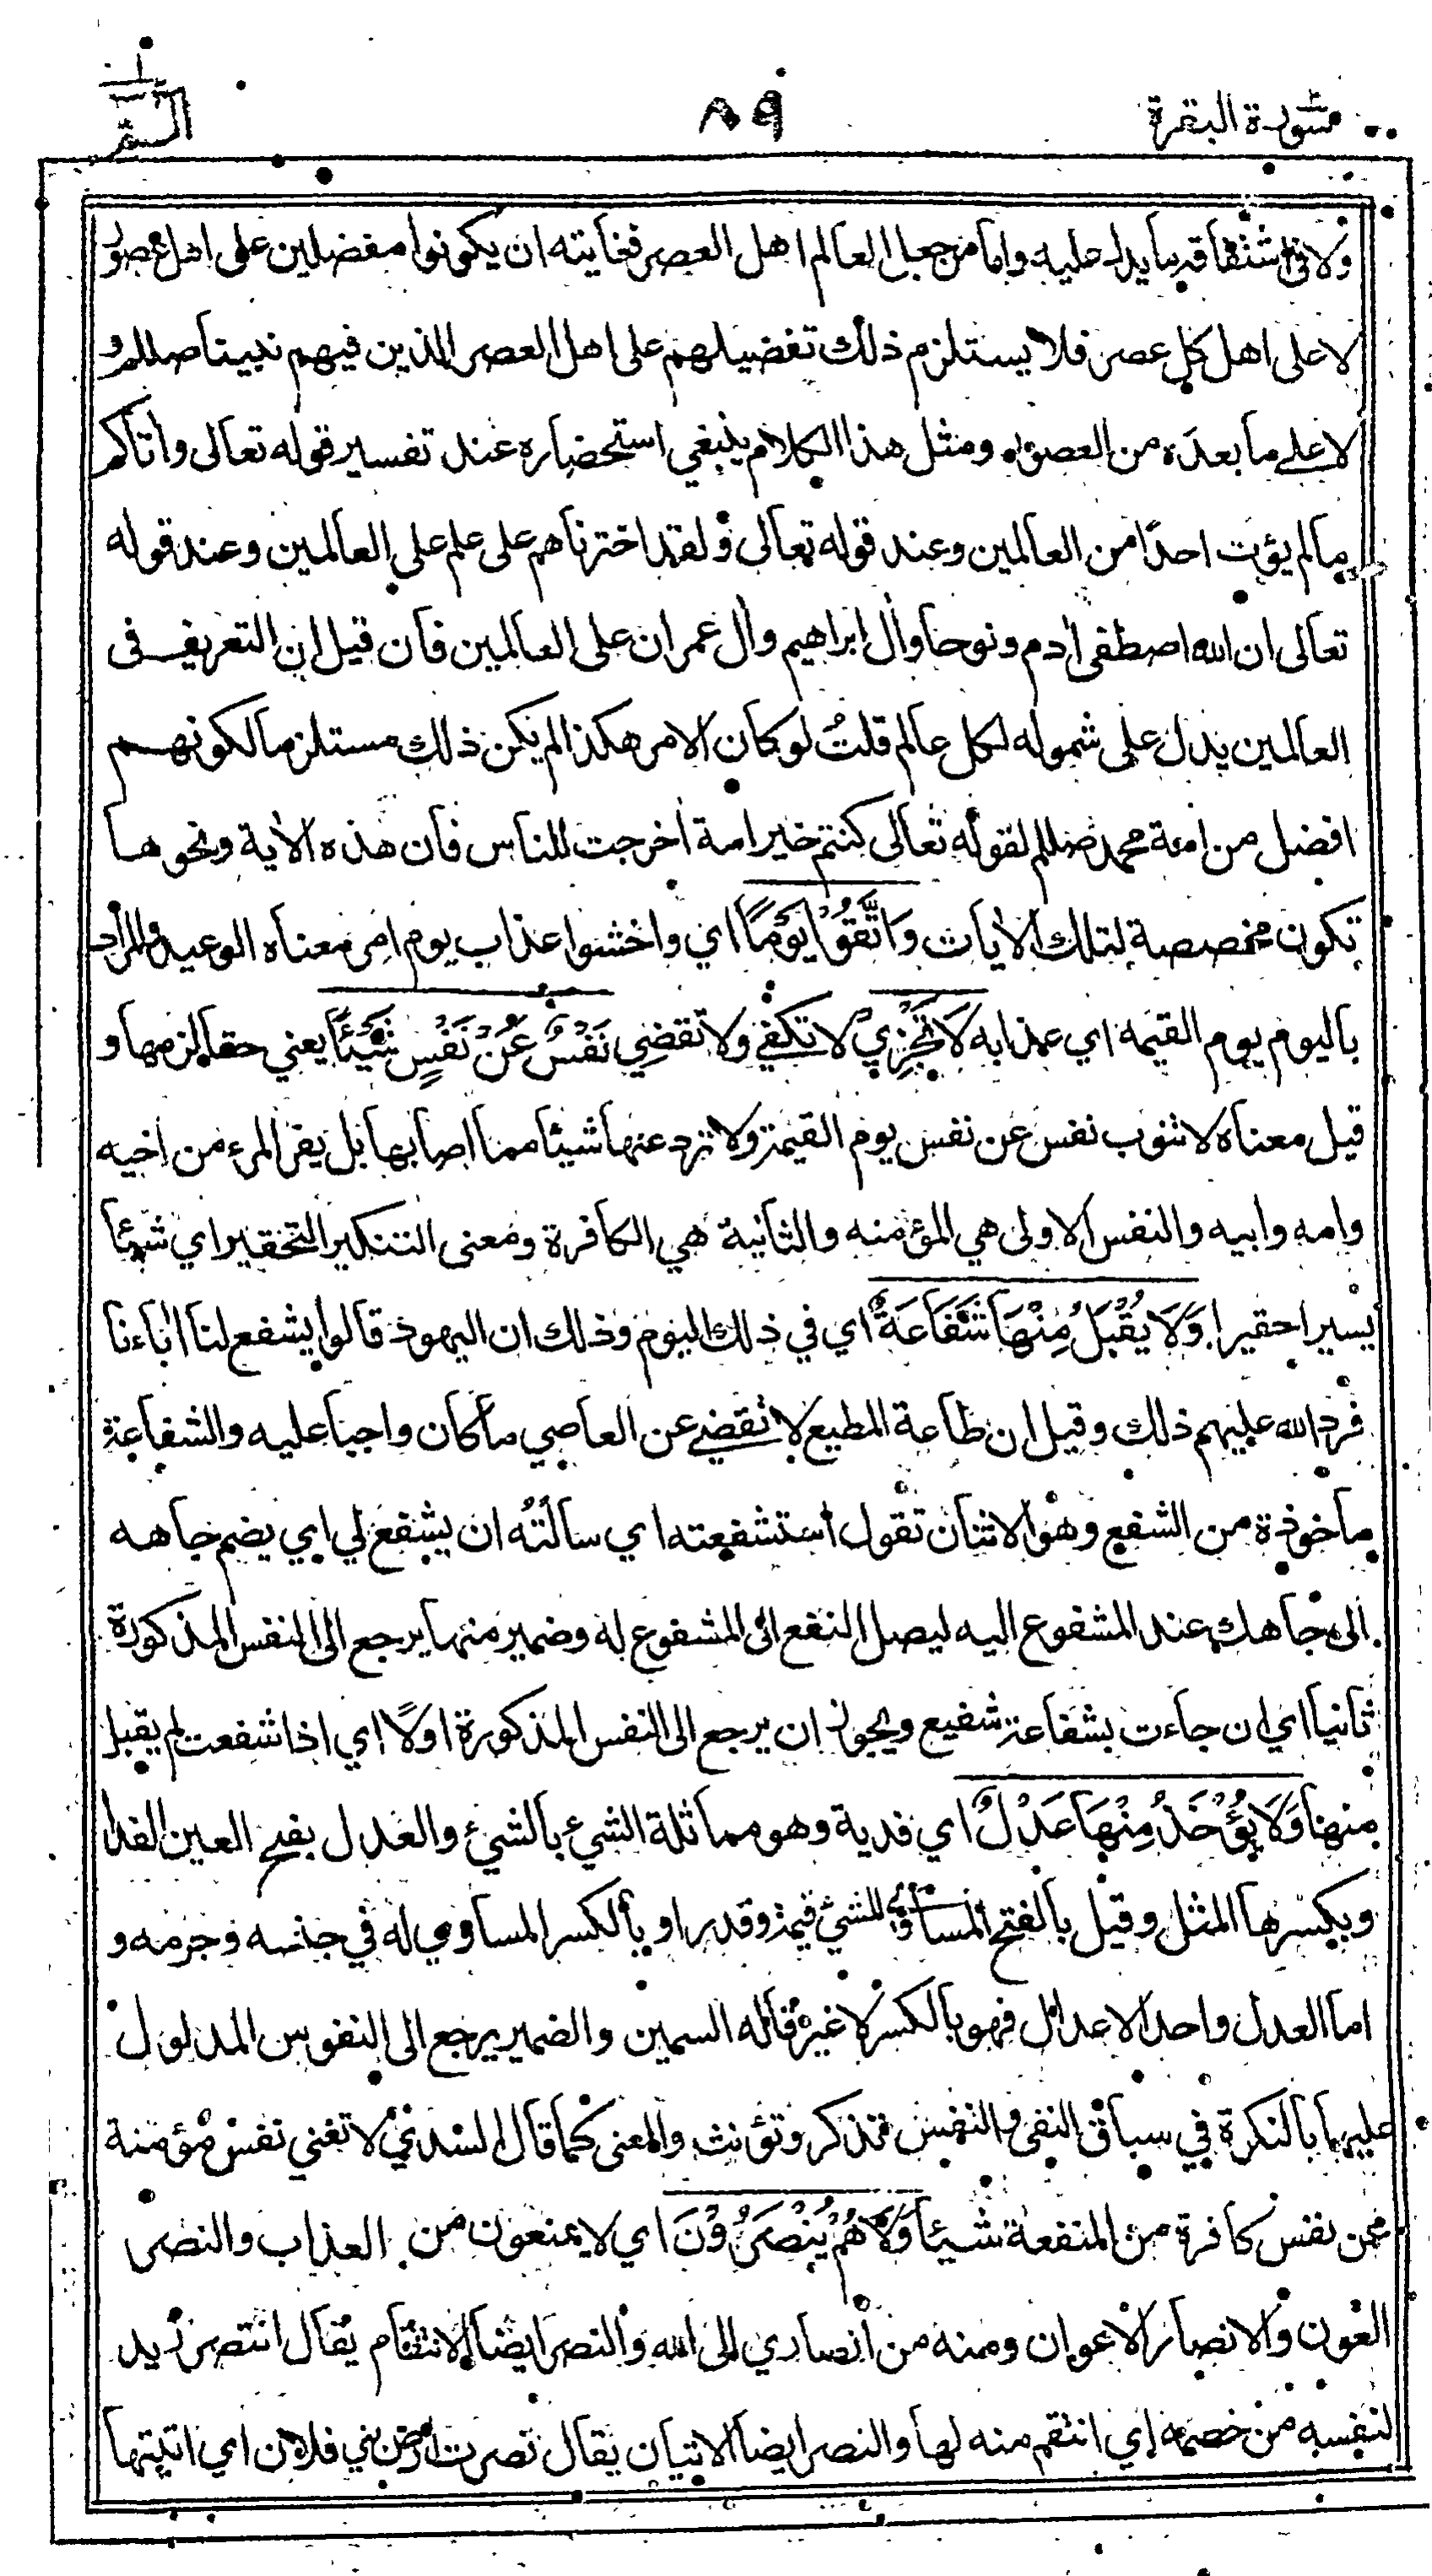 سورة البقرة
٨٩
الـم
ولا في اشتقاقه ما يدل عليه واما من جعل العالم اهل العصر فغايته ان يكونوا مفضلين على اهل عصور
لا على اهل كل عصر فلا يستلزم ذلك تفضيلهم على اهل العصر الذين فيهم نبينا صللم و
لا على ما بعده من العصور ومثل هذا الكلام ينبغي استحضاره عند تفسير قوله تعالى واتاكم
ما لم يؤت احدا من العالمين وعند قوله تعالى ولقد اخترناهم على علم على العالمين وعند قوله
تعالى ان الله اصطفى ادم ونوحا وال ابراهيم وال عمران على العالمين فان قيل ان التعريف في
العالمين يدل على شموله لكل عالم قلت لو كان الامر هكذا لم يكن ذلك مستلزما لكونهم
افضل من امة محمد صللم لقوله تعالى كنتم خير امة اخرجت للناس فان هذه الاية ونحوها
تكون مخصصة لتلك الايات وَاتَّقُوْا يَوْمًا اي واخشوا عذاب يوم امر معناه الوعيد والمراد
باليوم يوم القيمة اي عذابه لَا تَجْزِيْ لا تكفي ولا تقضي نَفْسٌ عَنْ نَفْسٍ شَيْئًا يعني حقا لزمها و
قيل معناه لا تنوب نفس عن نفس يوم القيمة ولا ترد عنها شيئا مما اصابها بل يفر المرء من اخيه
وامه وابيه والنفس الاولى هي المؤمنه والثانية هي الكافرة ومعنى التنكير التحقير اي شيئا
يسيرا حقيرا وَلَا يُقْبَلُ مِنْهَا شَفَاعَةٌ اي في ذلك اليوم وذلك ان اليهود قالوا يشفع لنا اباءنا
فرد الله عليهم ذلك وقيل ان طاعة المطيع لا تقضي عن العاصي ما كان واجبا عليه والشفاعة
ماخوذة من الشفع وهو الاثنان تقول استشفعته اي سالته ان يشفع لي اي يضم جاهه
الى جاهك عند المشفوع اليه ليصل النفع الى المشفوع له وضمير منها يرجع الى النفس المذكورة
ثانيا اي ان جاءت بشفاعة شفيع ويجوز ان يرجع الى النفس المذكورة اولًا اي اذا شفعت لم يقبل
منها وَلَا يُؤْخَذُ مِنْهَا عَدْلٌ اي فدية وهو مماثلة الشيء بالشيء والعدل بفتح العين الفدا
وبكسرها المثل وقيل بالفتح المساوي للشيء قيمة وقدرا وبالكسر المساوي له في جنسه وجرمه و
اما العدل واحد الاعدال فهو بالكسر لا غير قاله السمين والضمير يرجع الى النفوس المدلول
عليها بالنكرة في سياق النفي والنفس تذكر وتؤنث والمعنى كما قال السدي لا تغني نفس مؤمنة
عن نفس كافرة من المنفعة شيئا وَلَا هُمْ يُنْصَرُوْنَ اي لا يمنعون من العذاب والنصر
العون والانصار الاعوان ومنه من انصاري الى الله والنصر ايضا الانتقام يقال انتصر زيد
لنفسه من خصمه اي انتقم منه لها والنصر ايضا الاتيان يقال نصرت ارض بني فلان اي اتيتها